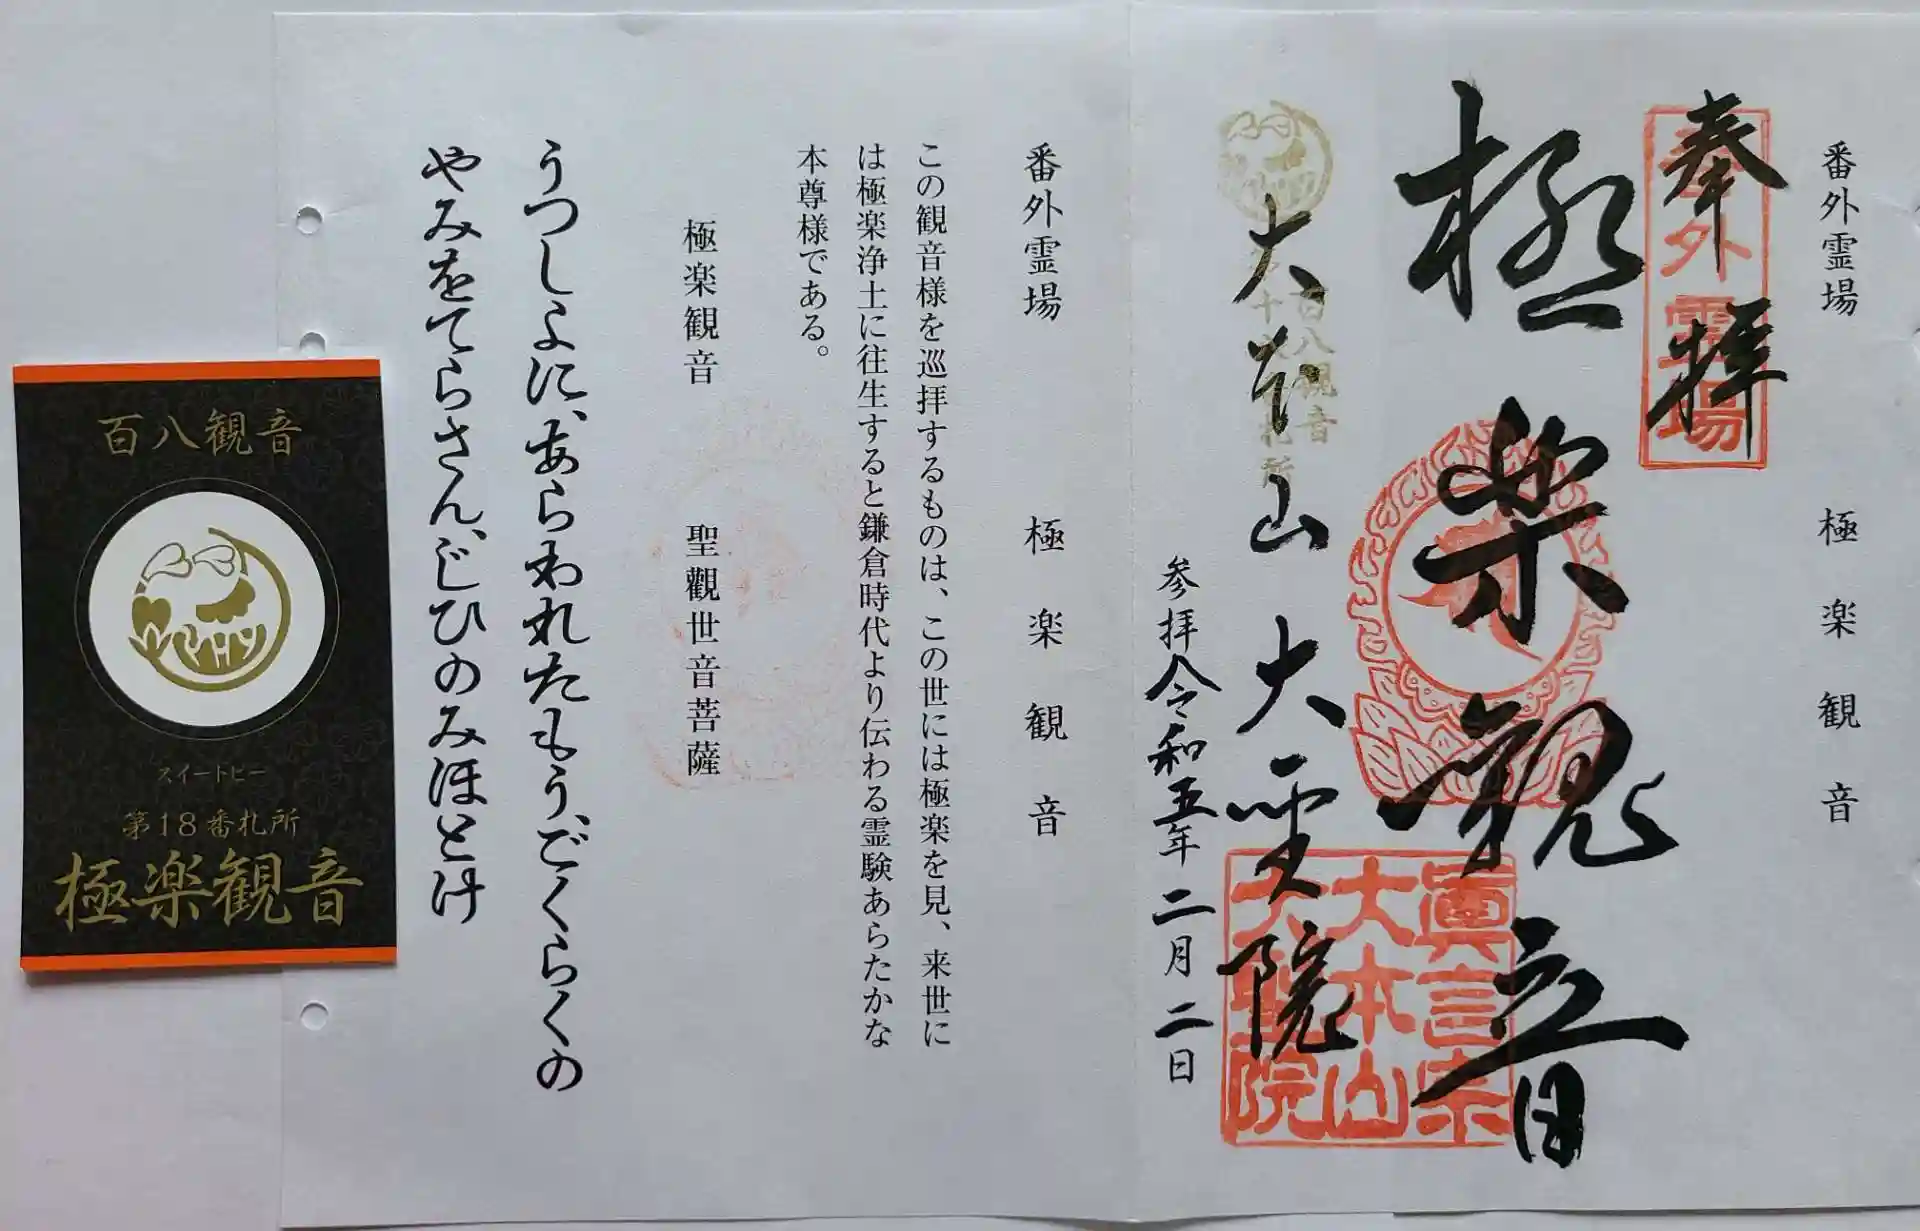 番外霊場 極楽観音
奉拝
番外霊場
極楽観音
眞言宗
大本山
大聖院
大本山大聖院
百八観音
参拝令和五年二月二日
番外霊場 極楽観音
この観音様を巡拝するものは、この世には極楽を見、来世に
は極楽浄土に往生すると鎌倉時代より伝わる霊験あらたかな
本尊様である。
極楽観音 聖觀世音菩薩
うつしよに、あらわれたもう、ごくらくの
やみをてらさん、じひのみほとけ
百八観音
スイートピー
第18番札所
極楽観音